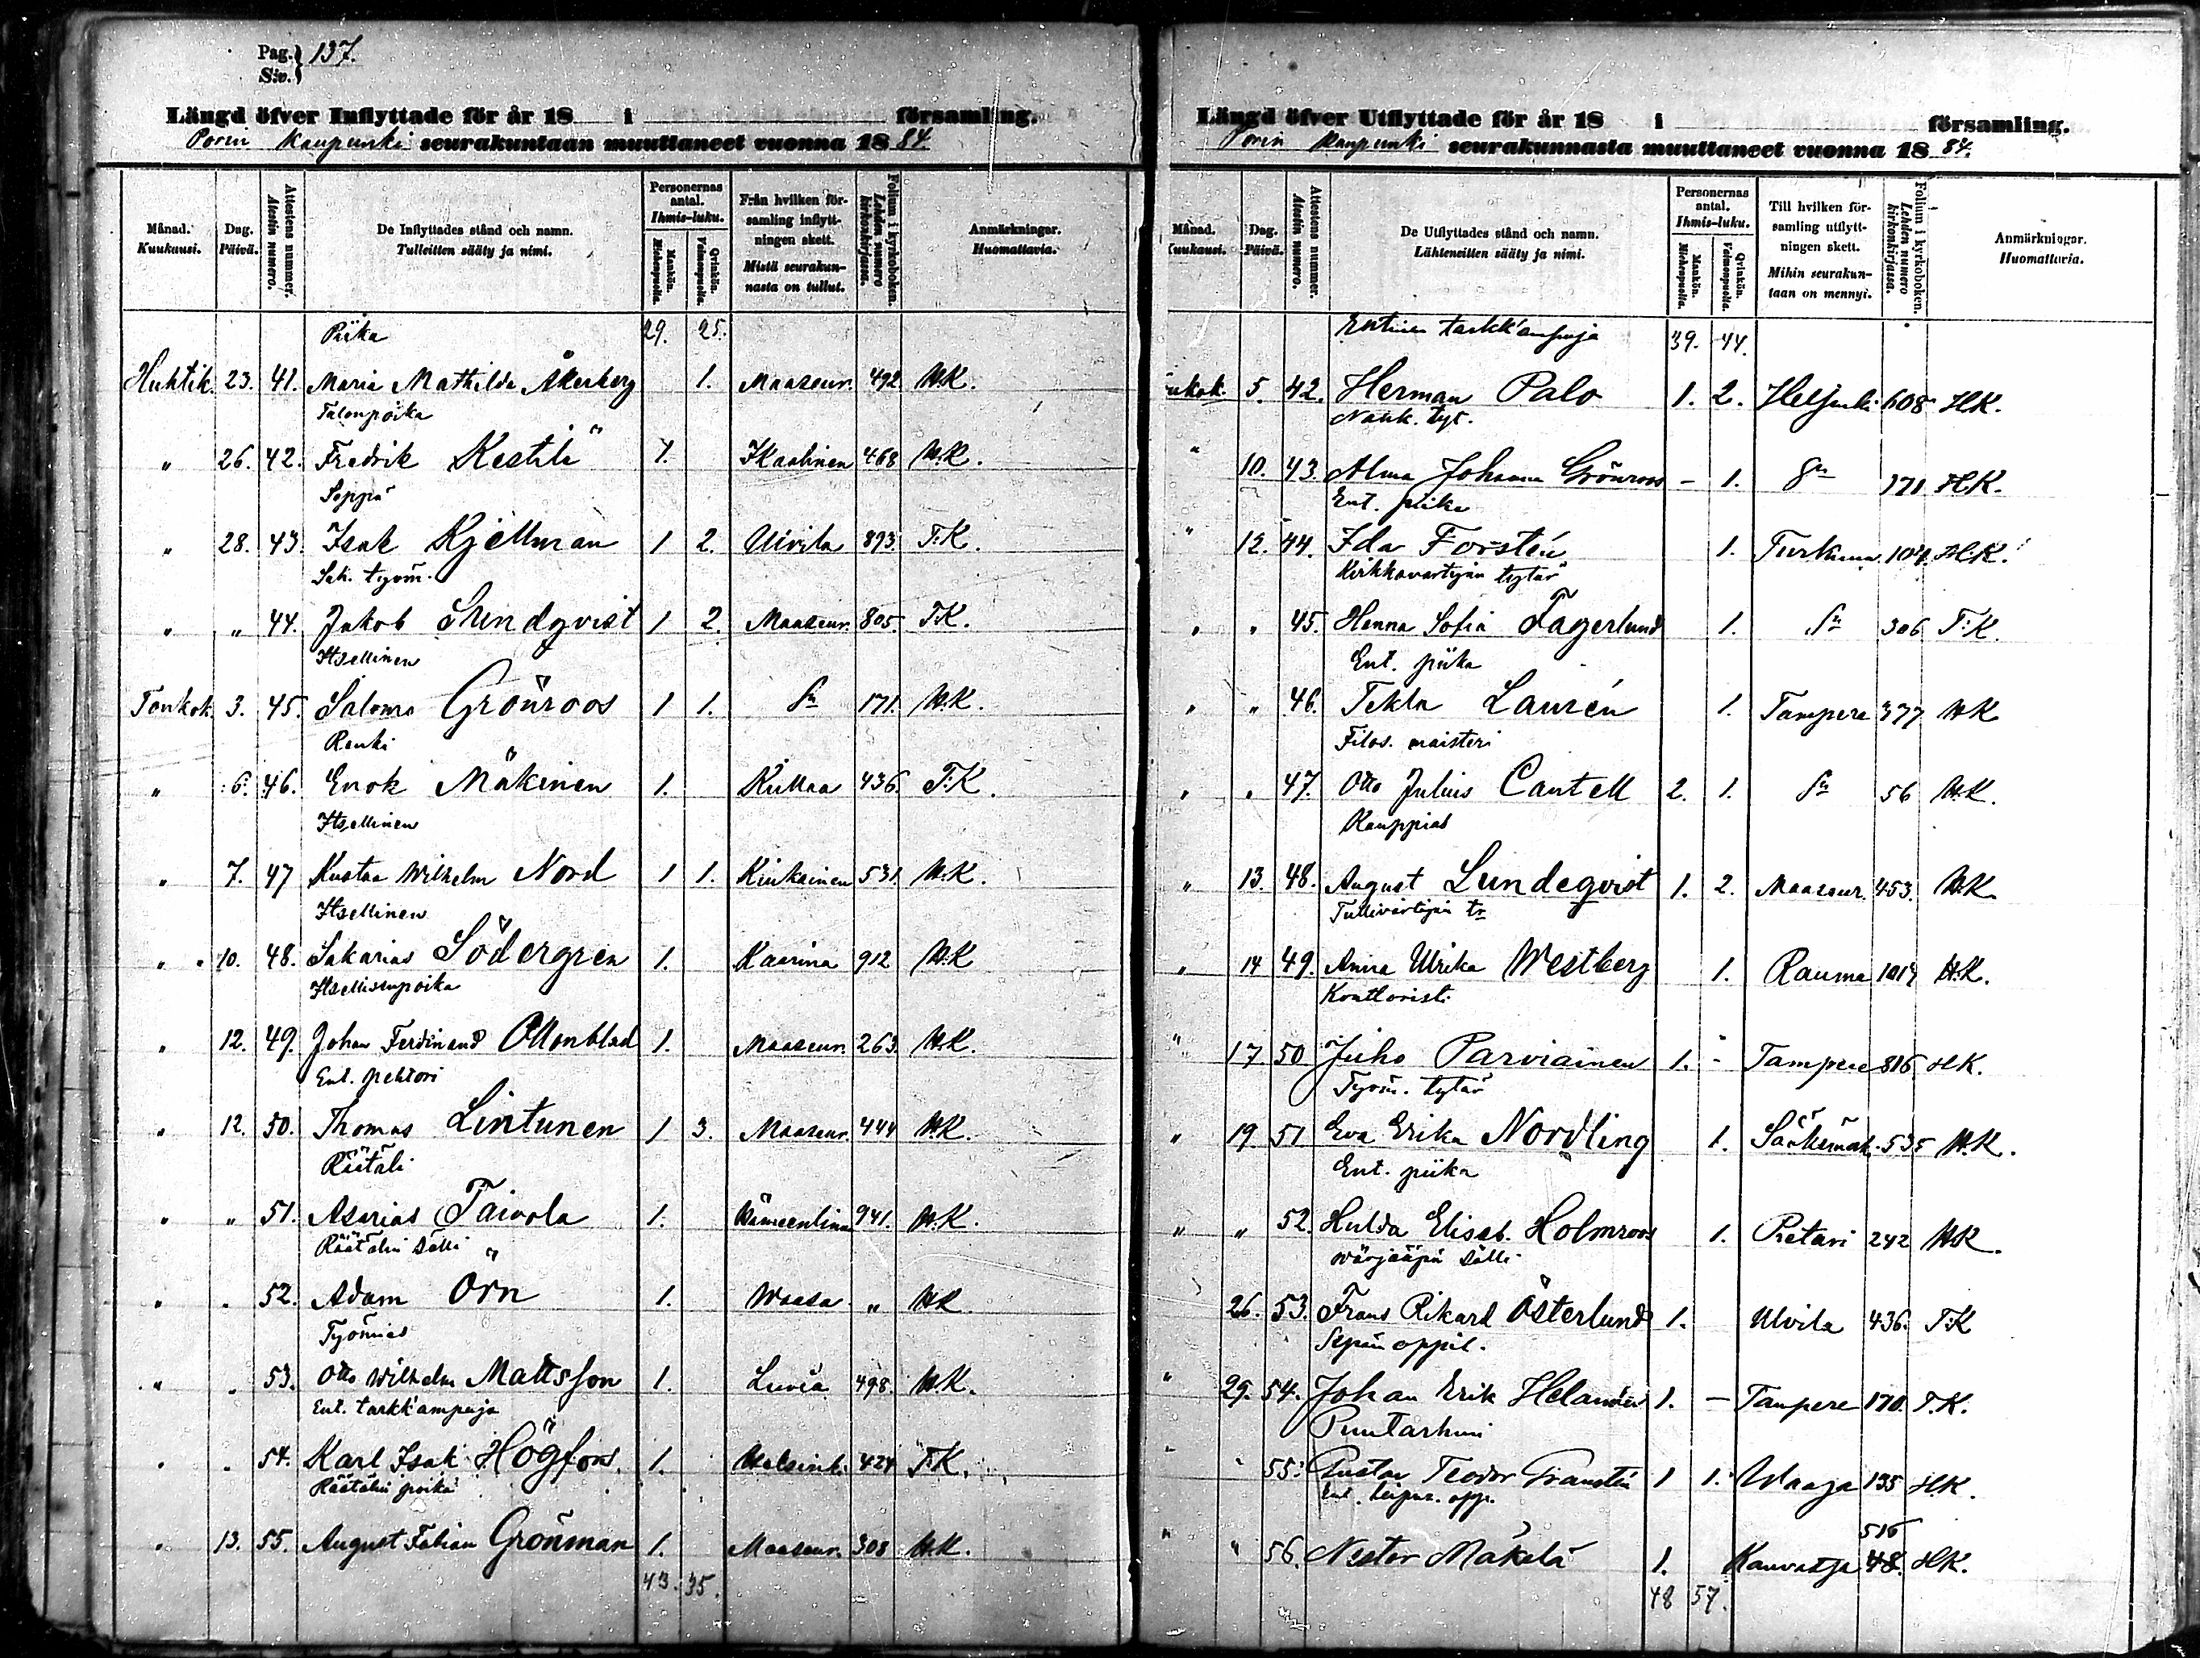 Pag. } 137.
Siv. }
Längd öfver Inflyttade för år 18 i församling.
Porin Kaupunki seurakuntaan muuttaneet vuonna 1884.
Månad. Kuukausi. | Dag. Päivä. | Attestens nummer. Atestin numero. | De Inflyttades stånd och namn. Tulleitten sääty ja nimi. | Personernas antal. Ihmis-luku. Mankön. Miehenpuolia. Qvinkön. Vaimonpuolia. | Från hvilken församling inflyttningen skett. Mistä seurakunnasta on tullut. | Folium i kyrkoboken. Lehden numero kirkonkirjassa. | Anmärkningar. Huomattavia.
Piika 29. 25.
Huhtik. 23. 41. Maria Mathilda Åkerberg 1. Maaseur. 492 H.K.
Talonpoika
" 26. 42. Fredrik Kestilä 1. Ikaalinen 468 H.K.
Seppä
" 28. 43. Isak Kjellman 1 2. Ulvila 893. T.K.
Sah. työm.
" " 44. Jakob Sundqvist 1 2. Maaseur. 805. T.K.
Itsellinen
Toukok. 3. 45. Salomo Grönroos 1 1. Sn 171. H.K.
Renki
" 6. 46. Enok Mäkinen 1. Kullaa 436. T.K.
Itsellinen
" 7. 47 Kustaa Wilhelm Nord 1 1. Kiukainen 531. H.K.
Itsellinen
" 10. 48. Sakarias Södergren 1. Kaarina 912 H.K
Itsellisenpoika
" 12. 49. Johan Ferdinand Ottonblad 1. Maaseur. 263. H.K.
Ent. pehtori
" 12. 50. Thomas Lintunen 1 3. Maaseur. 444 H.K.
Räätäli
" " 51. Asarias Taivola 1. Hämeenlinna 941. H.K.
Räätälin sälli
" " 52. Adam Örn 1. Waasa " H.K
Työmies
" " 53. Otto Wilhelm Mattsson 1. Luvia 498. H.K.
Ent. tarkk'ampuja
" " 54. Karl Isak Högfors. 1. Helsinki 424 T.K.
Räätälin poika
" 13. 55. August Fabian Grönman 1. Maaseur. 308 H.K.
43. 35.
Längd öfver Utflyttade för år 18 i församling.
Porin Kaupunki seurakunnasta muuttaneet vuonna 1884.
Månad. Kuukausi. | Dag. Päivä. | Attestens nummer. Atestin numero. | De Utflyttades stånd och namn. Lähteneitten sääty ja nimi. | Personernas antal. Ihmis-luku. Mankön. Miehenpuolia. Qvinkön. Vaimonpuolia. | Till hvilken församling utflyttningen skett. Mihin seurakuntaan on mennyt. | Folium i kyrkoboken. Lehden numero kirkonkirjassa. | Anmärkningar. Huomattavia.
Entinen tarkk'ampuja 39. 44.
ukok. 5. 42. Herman Palo 1. 2. Helsinki 608 H.K.
Nahk. tyt.
" 10. 43. Alma Johanna Grönroos - 1. Sn 171 H.K.
Ent. piika
" 12. 44. Ida Forstén 1. Turkuun 104. H.K.
Kirkkovartijan tytär
" " 45. Hanna Sofia Fagerlund 1. Sn 306 T.K.
Ent. piika
" " 46. Tekla Laurén 1. Tampere 377 H.K
Filos. maisteri
" " 47. Otto Julius Cantell 2. 1. Sn 56 H.K.
Kauppias
" 13. 48. August Lundeqvist 1. 2. Maaseur. 453. H.K
Tullivartijan tr
" 14 49. Anna Ulrika Westberg 1. Rauma 1017 H.K.
Konttoristi
" 17 50 Juho Parviainen 1. - Tampere 816 H.K.
Työm. tytär
" 19 51 Eva Erika Nordling 1. Sääksmäk. 535 H.K.
Ent. piika
" " 52. Hulda Elisab. Holmroos 1. Pietari 242 H.K.
Wärjääjän sälli
26. 53. Frans Rikard Österlund 1. Ulvila 436. T.K
Sepän oppil.
" 29. 54. Johan Erik Helander 1. - Tampere 170. T.K.
Puutarhuri
" " 55. Gustav Teodor Granstén 1 1. Waasa 135 H.K.
Ent. leipur. opp.
" " 56. Nestor Mäkelä 1. Kauvatsa 516 48. H.K.
48 57.